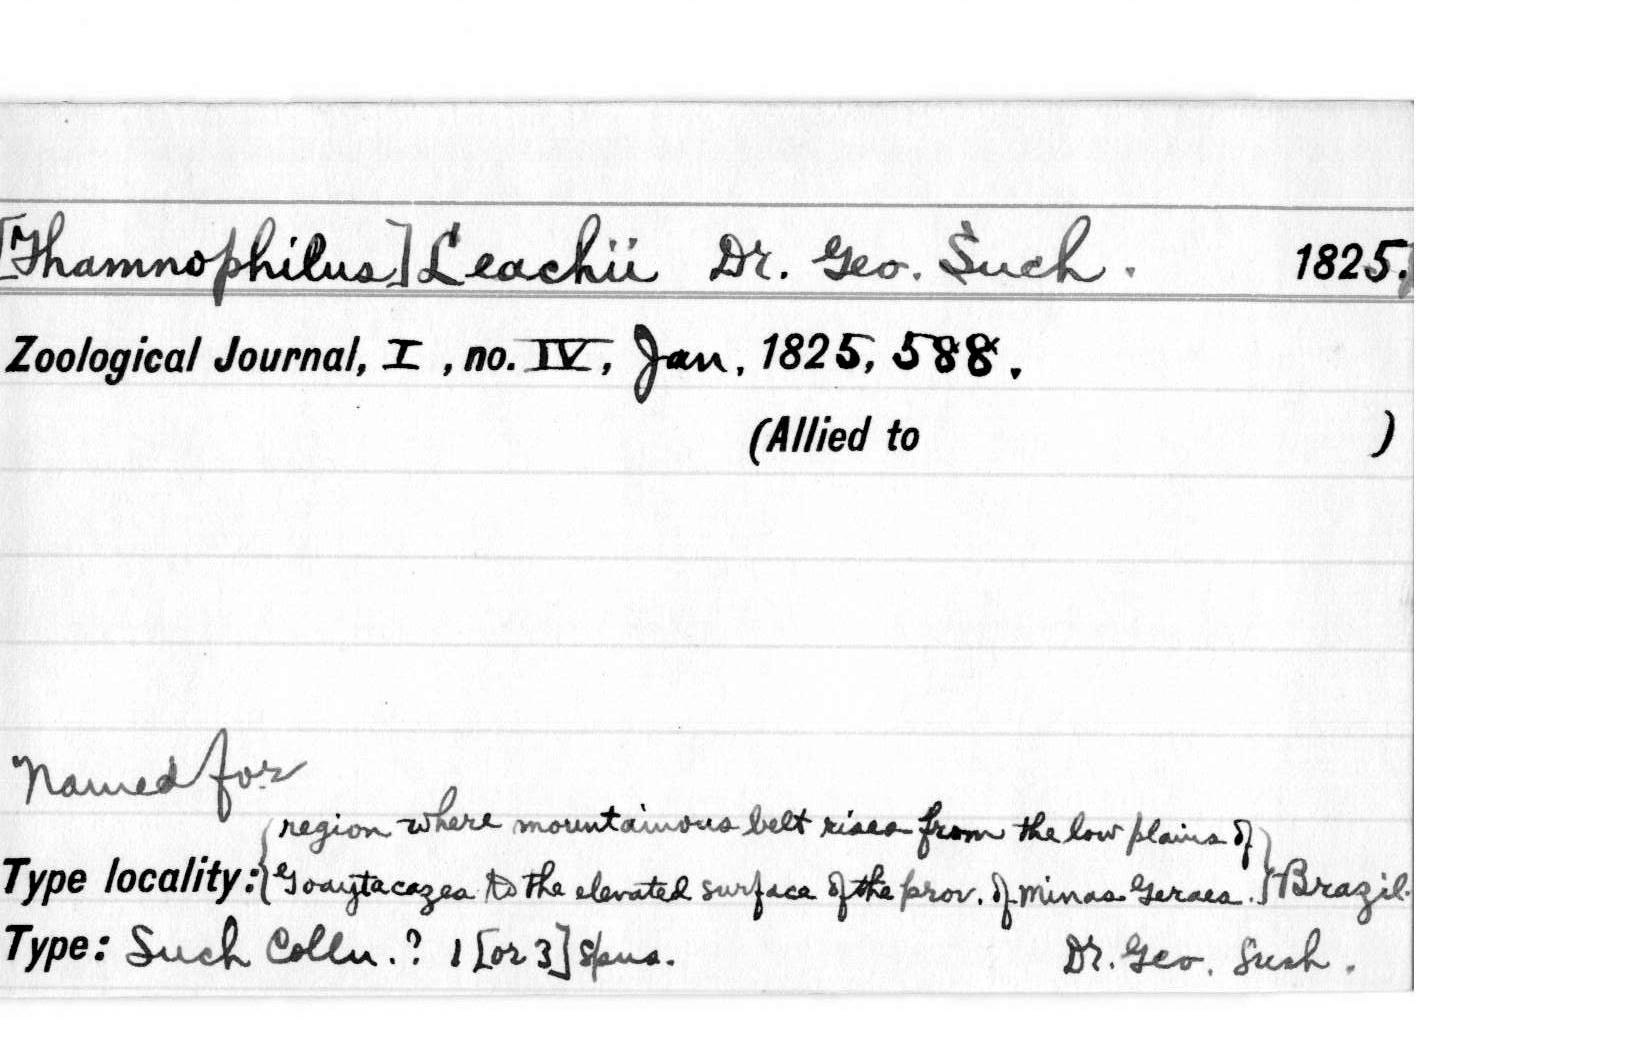 [Thamnophilus] Leachii Dr. Geo. Such. 1825.
Zoological Journal, I, no. IV, Jan, 1825, 588.
(Allied to )
Named for
region where mountainous belt rises from the low plains of
Type locality: Goaytacazes to the elevated surface of the prov. of Minas Geraes. Brazil.
Type: Such Colln.? 1 [or 3] spns. Dr. Geo. Such.